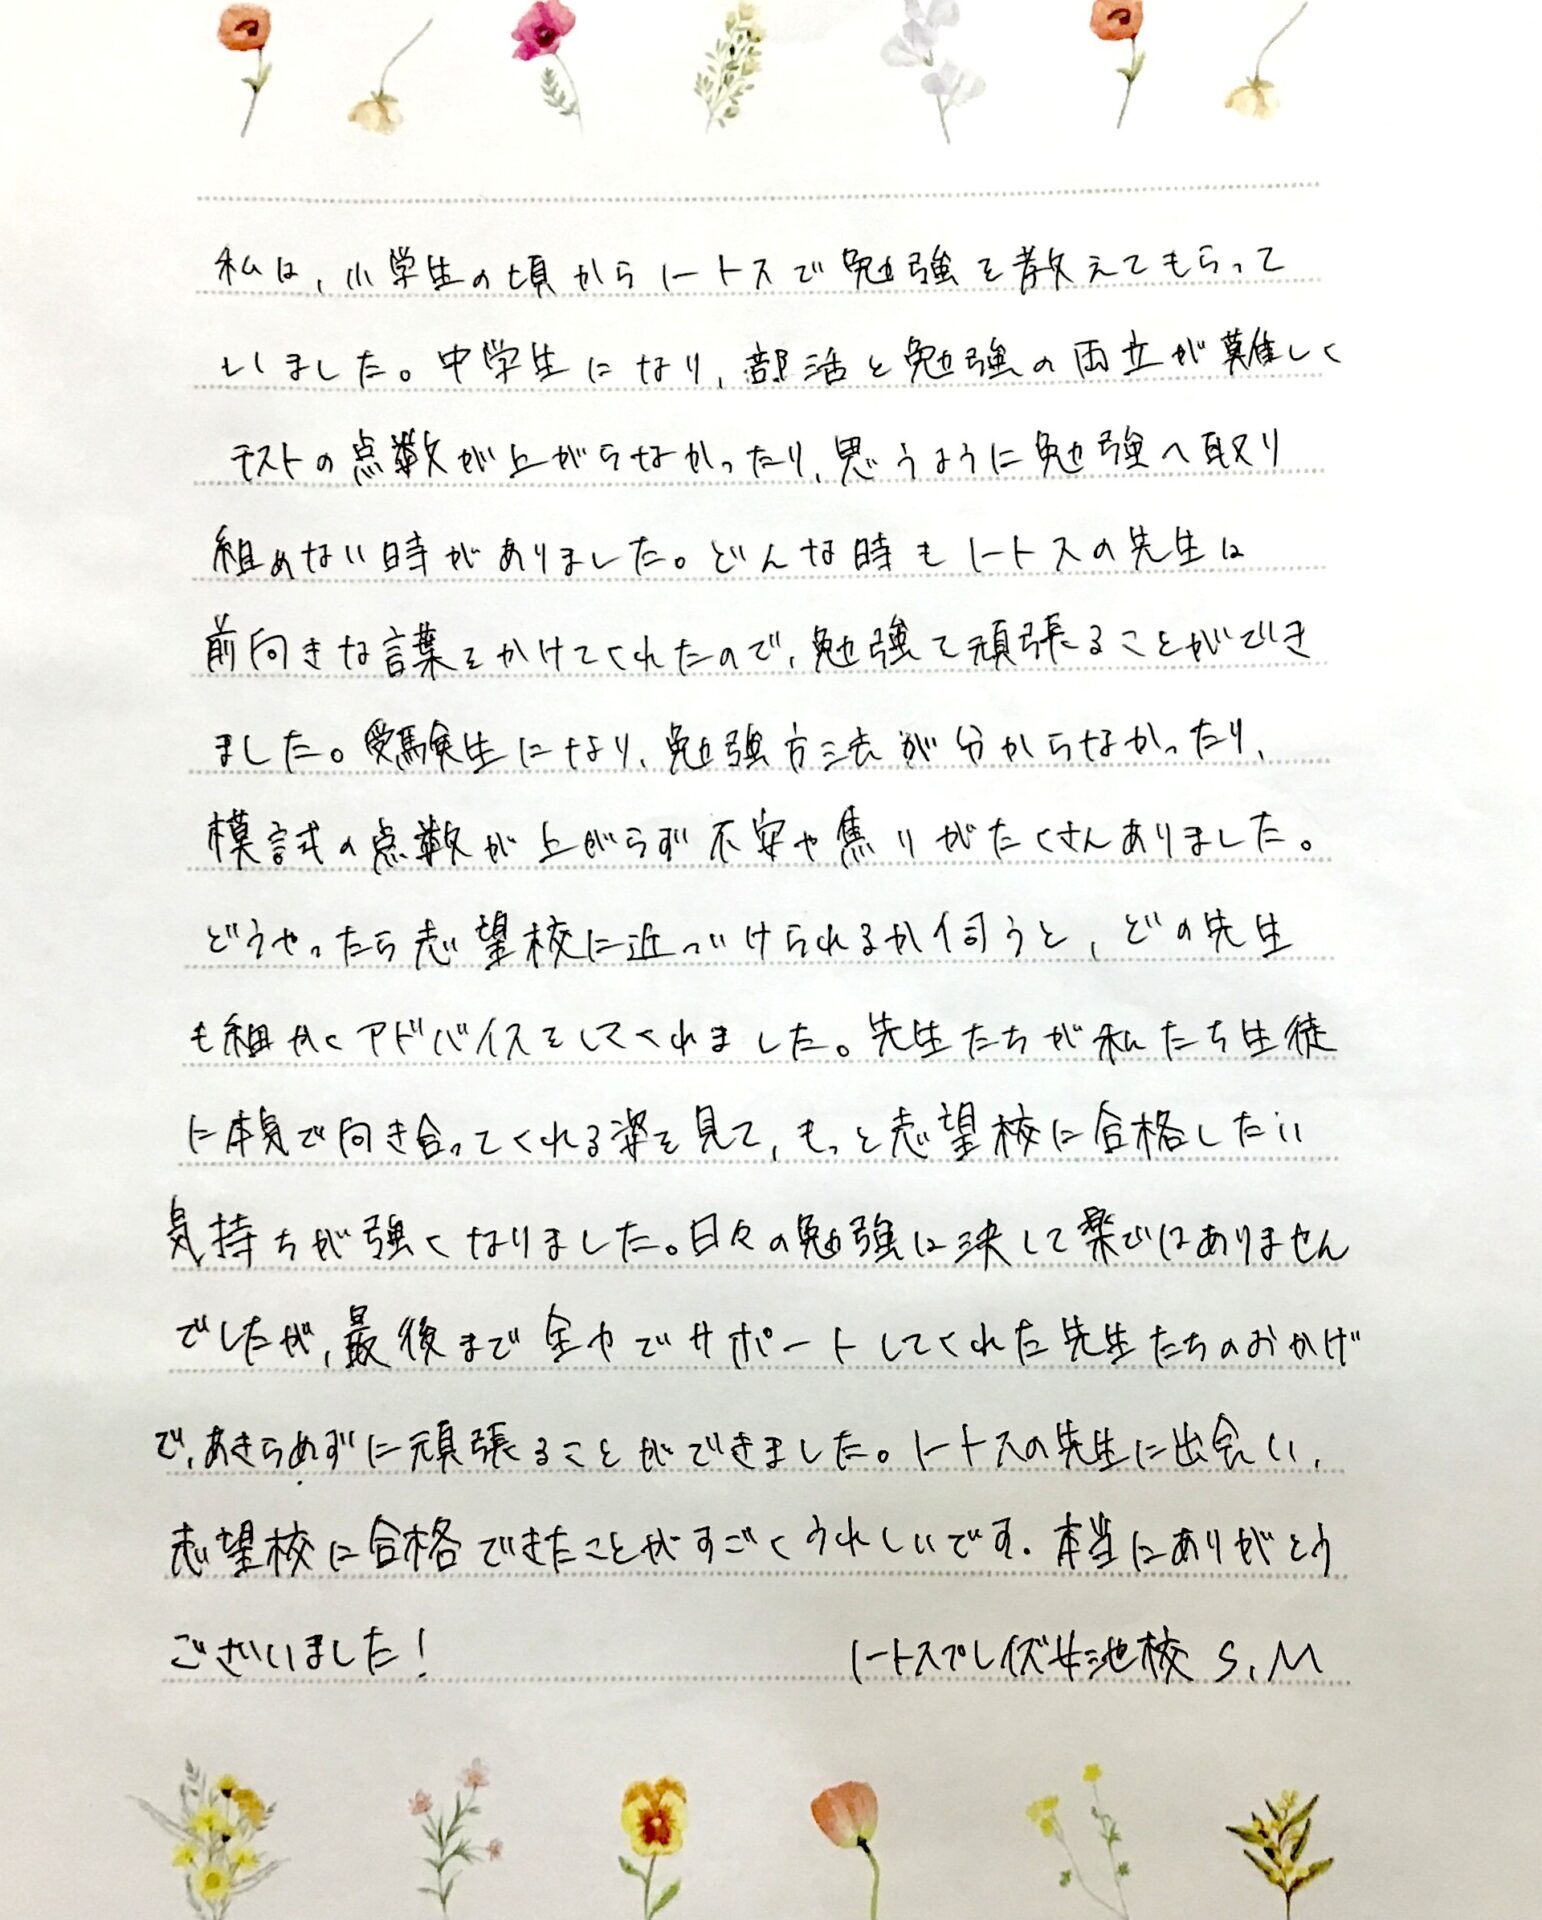 私は、小学生の頃からノートスで勉強を教えてもらって
いました。中学生になり、部活と勉強の両立が難しく
テストの点数が上がらなかったり、思うように勉強へ取り
組めない時がありました。どんな時もノートスの先生は
前向きな言葉をかけてくれたので、勉強て頑張ることができ
ました。受験生になり、勉強方法が分からなかったり、
模試の点数が上がらず不安や焦りがたくさんありました。
どうやったら志望校に近づけられるか伺うと、どの先生
も細かくアドバイスをしてくれました。先生たちが私たち生徒
に本気で向き合ってくれる姿を見て、もっと志望校に合格したい
気持ちが強くなりました。日々の勉強は決して楽ではありません
でしたが、最後まで全力でサポートしてくれた先生たちのおかげ
で、あきらめずに頑張ることができました。ノートスの先生に出会い、
志望校に合格できたことがすごくうれしいです。本当にありがとう
ございました!
ノートスプレイズ女池校 S.M